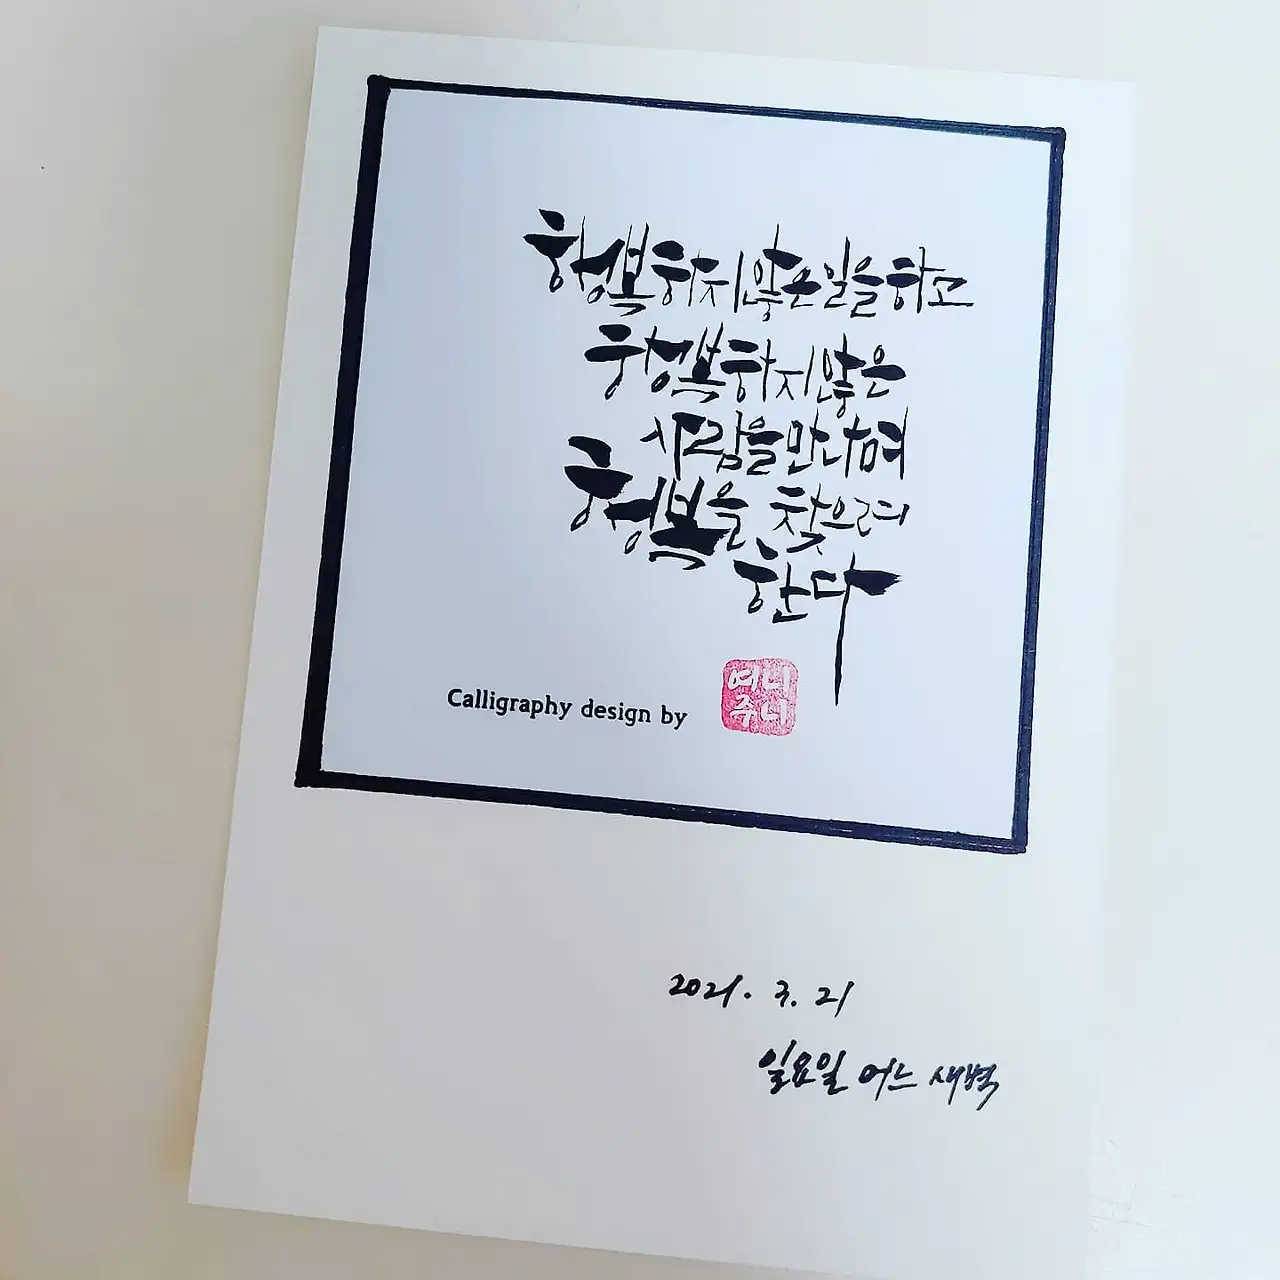 행복하지않은일을하고
행복하지않은
사람을만나며
행복을 찾으려
한다
Calligraphy design by
여니
쥬니
2021. 3. 21
일요일 어느 새벽